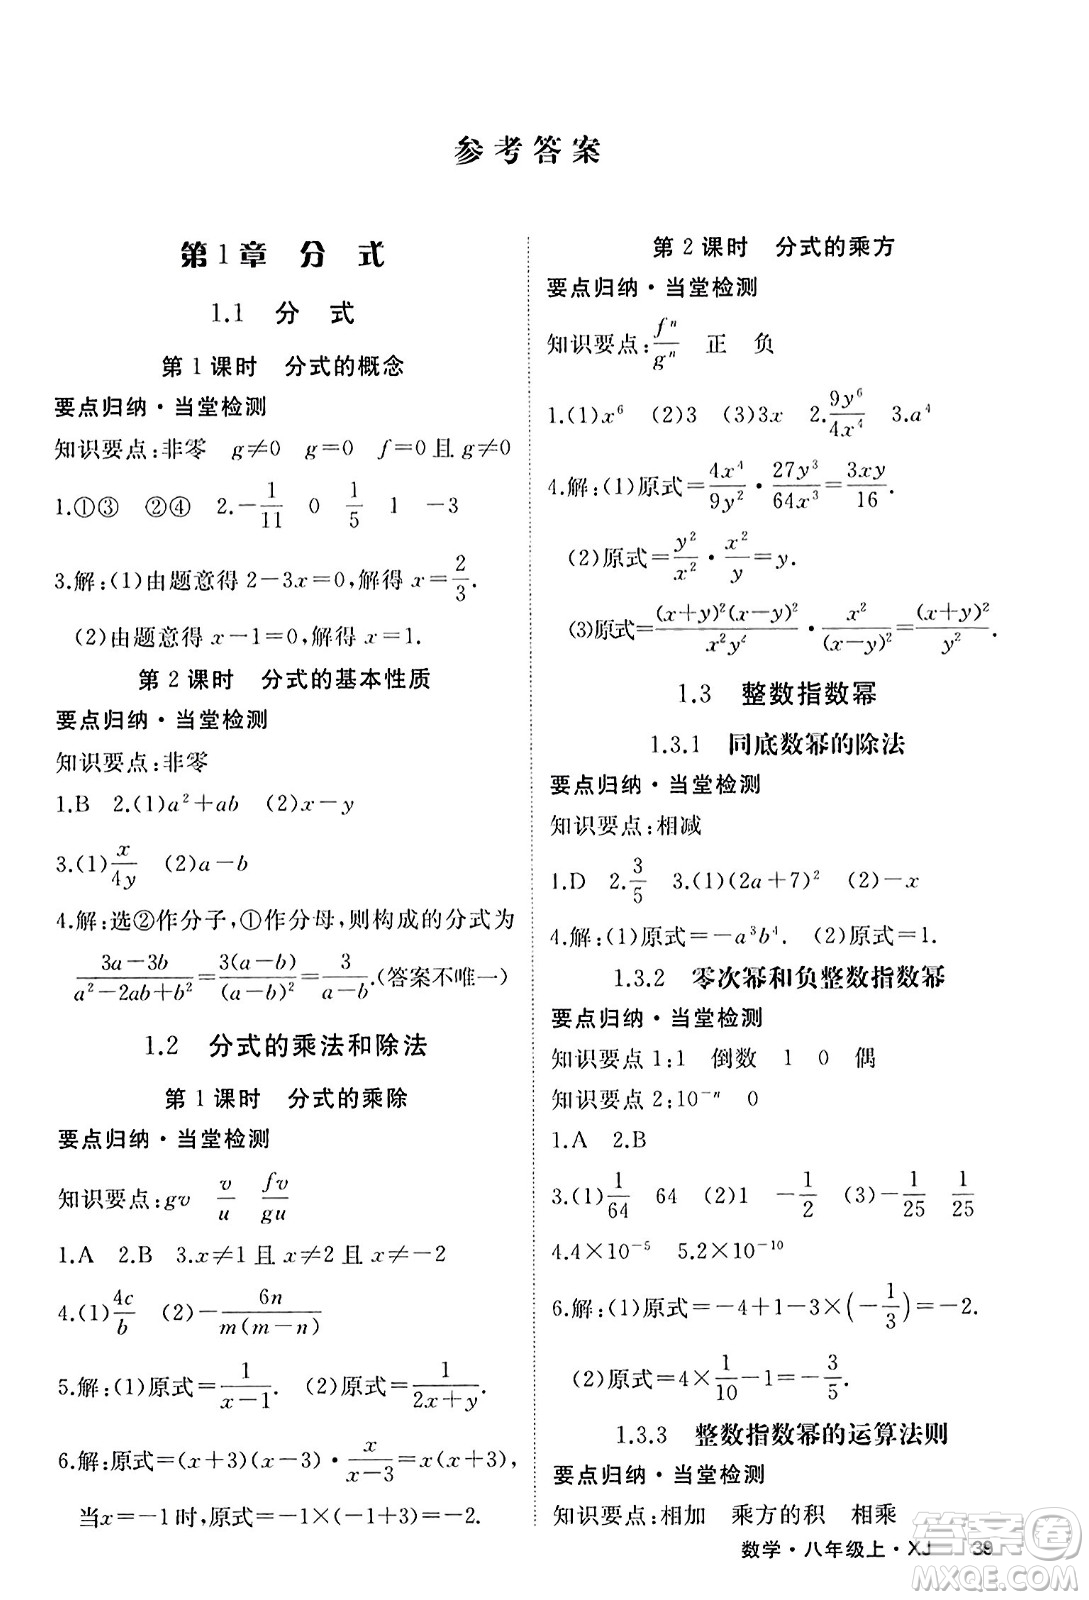 参考答案
第1章 分 式
1.1 分 式
第1课时 分式的概念
要点归纳·当堂检测
知识要点:非零 g≠0 g=0 f=0且g≠0
1.①③ ②④ 2.-1/11 0 1/5 1 -3
3.解:(1)由题意得2-3x=0,解得x=2/3.
(2)由题意得x-1=0,解得x=1.
第2课时 分式的基本性质
要点归纳·当堂检测
知识要点:非零
1.B 2.(1)a²+ab (2)x-y
3.(1)x/4y (2)a-b
4.解:选②作分子,①作分母,则构成的分式为
(3a-3b)/(a²-2ab+b²)=3(a-b)/(a-b)²=3/(a-b).(答案不唯一)
1.2 分式的乘法和除法
第1课时 分式的乘除
要点归纳·当堂检测
知识要点:gv v/u fv/gu
1.A 2.B 3.x≠1且x≠3且x≠-2
4.(1)4c/b (2)-6n/m(m-n)
5.解:(1)原式=1/(x-1). (2)原式=1/(2x+y).
6.解:原式=(x+3)(x-3)·x/(x-3)=x(x+3),
当x=-1时,原式=-1×(-1+3)=-2.
第2课时 分式的乘方
要点归纳·当堂检测
知识要点:fⁿ/gⁿ 正 负
1.(1)x⁶ (2)3 (3)3x 2.9y⁶/4x⁴ 3.a⁴
4.解:(1)原式=4x⁴/9y²·27y³/64x³=3xy/16.
(2)原式=y²/x²·x²/y=y.
(3)原式=(x+y)²(x-y)²/x²y²·x²/(x-y)²=(x+y)²/y².
1.3 整数指数幂
1.3.1 同底数幂的除法
要点归纳·当堂检测
知识要点:相减
1.D 2.3/5 3.(1)(2a+7)² (2)-x
4.解:(1)原式=-a³b⁴. (2)原式=1.
1.3.2 零次幂和负整数指数幂
要点归纳·当堂检测
知识要点1:1 倒数 1 0 偶
知识要点2:10⁻ⁿ 0
1.A 2.B
3.(1)1/64 64 (2)1 -1/2 (3)-1/25 1/25
4.4×10⁻⁵ 5.2×10⁻¹⁰
6.解:(1)原式=-4+1-3×(-1/3)=-2.
(2)原式=4×1/10-1=-3/5.
1.3.3 整数指数幂的运算法则
要点归纳·当堂检测
知识要点:相加 乘方的积 相乘
数学·八年级上·XJ 39
答案圈
MXQE.COM